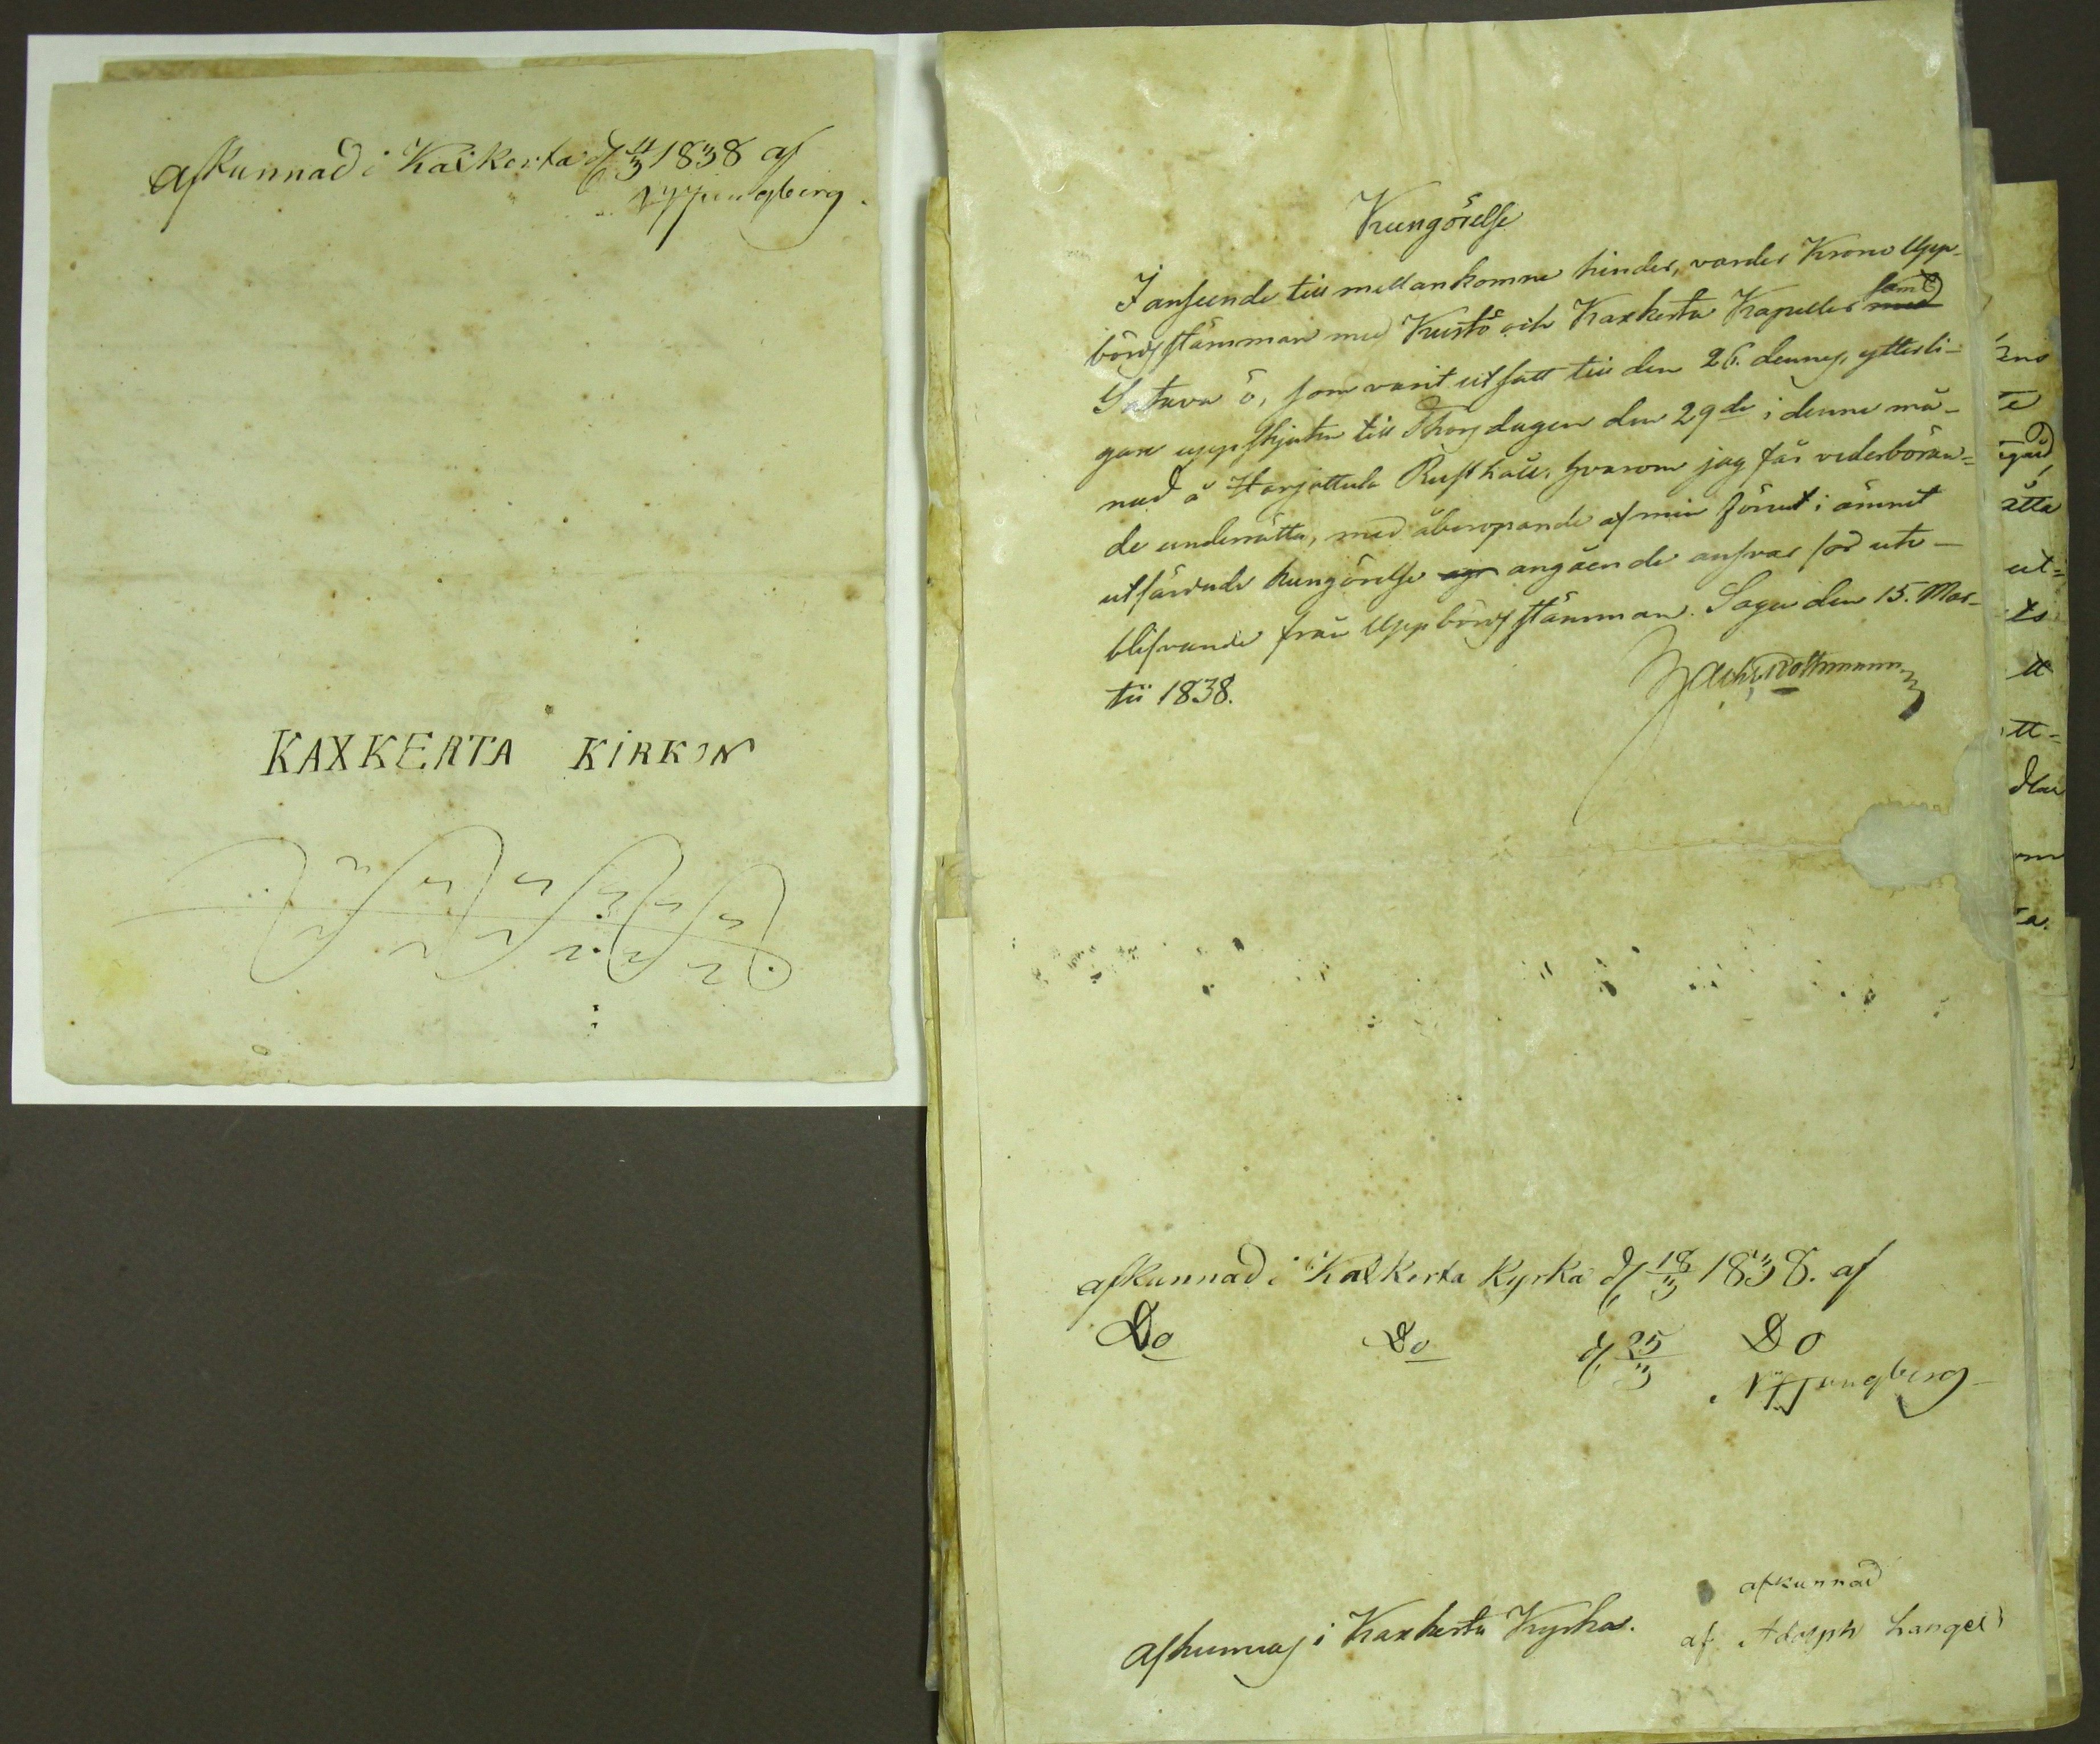 afkunnad i Kaxkerta d/ 11/3 1838 af
Ljungberg.
KAXKERTA KIRKON
Kungörelse
I anseende till mellankomne hinder, varder Krono Upp-
börds stämman med Kustö och Kaxkerta Kapeller med samt
Satava ö, som varit utsatt till den 26. dennes, ytterli-
gare uppskjuten till Thorsdagen den 29de i denne må-
nad å Harjattula Rusthåll, hvarom jag får vederböran=
de underrätta, med åberopande af min förut i ämnet
utfärdade kungörelse angående ansvar för ute-
blifvande från Uppbörds stämman. Sagu den 15. Mar-
tii 1838.
Zach. Rothmann
afkunnad i Kaxkerta Kyrka d/ 18/3 1838. af
Do Do d/ 25/3 Do
Ljungberg
afkunnas i Kaxkerta Kyrka.
afkunnad
af Adolph Langel
ätta
ut=
ts
tt
tt=